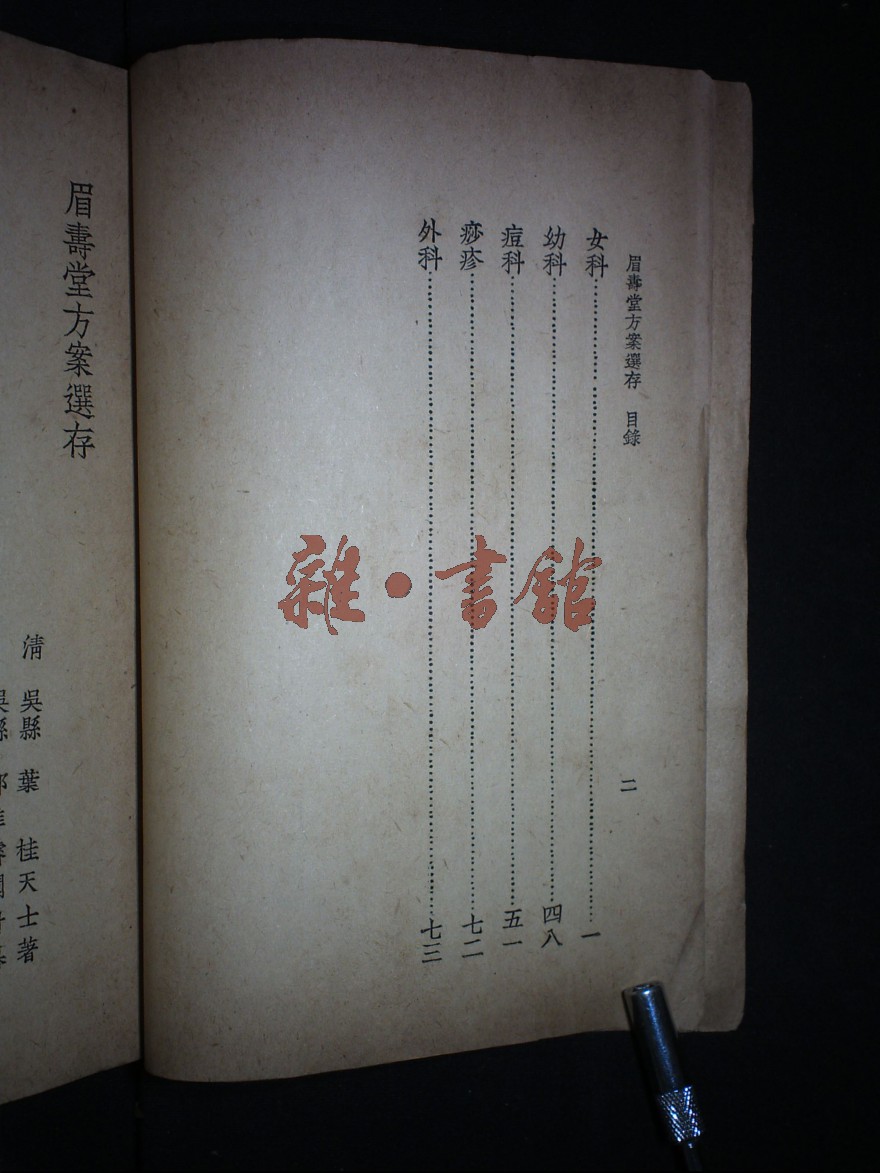 眉壽堂方案選存　目錄　二
女科……一
幼科……四八
痘科……五一
痧疹……七二
外科……七三
眉壽堂方案選存
清　吳縣　葉　桂天士著
吳縣
雜·書館